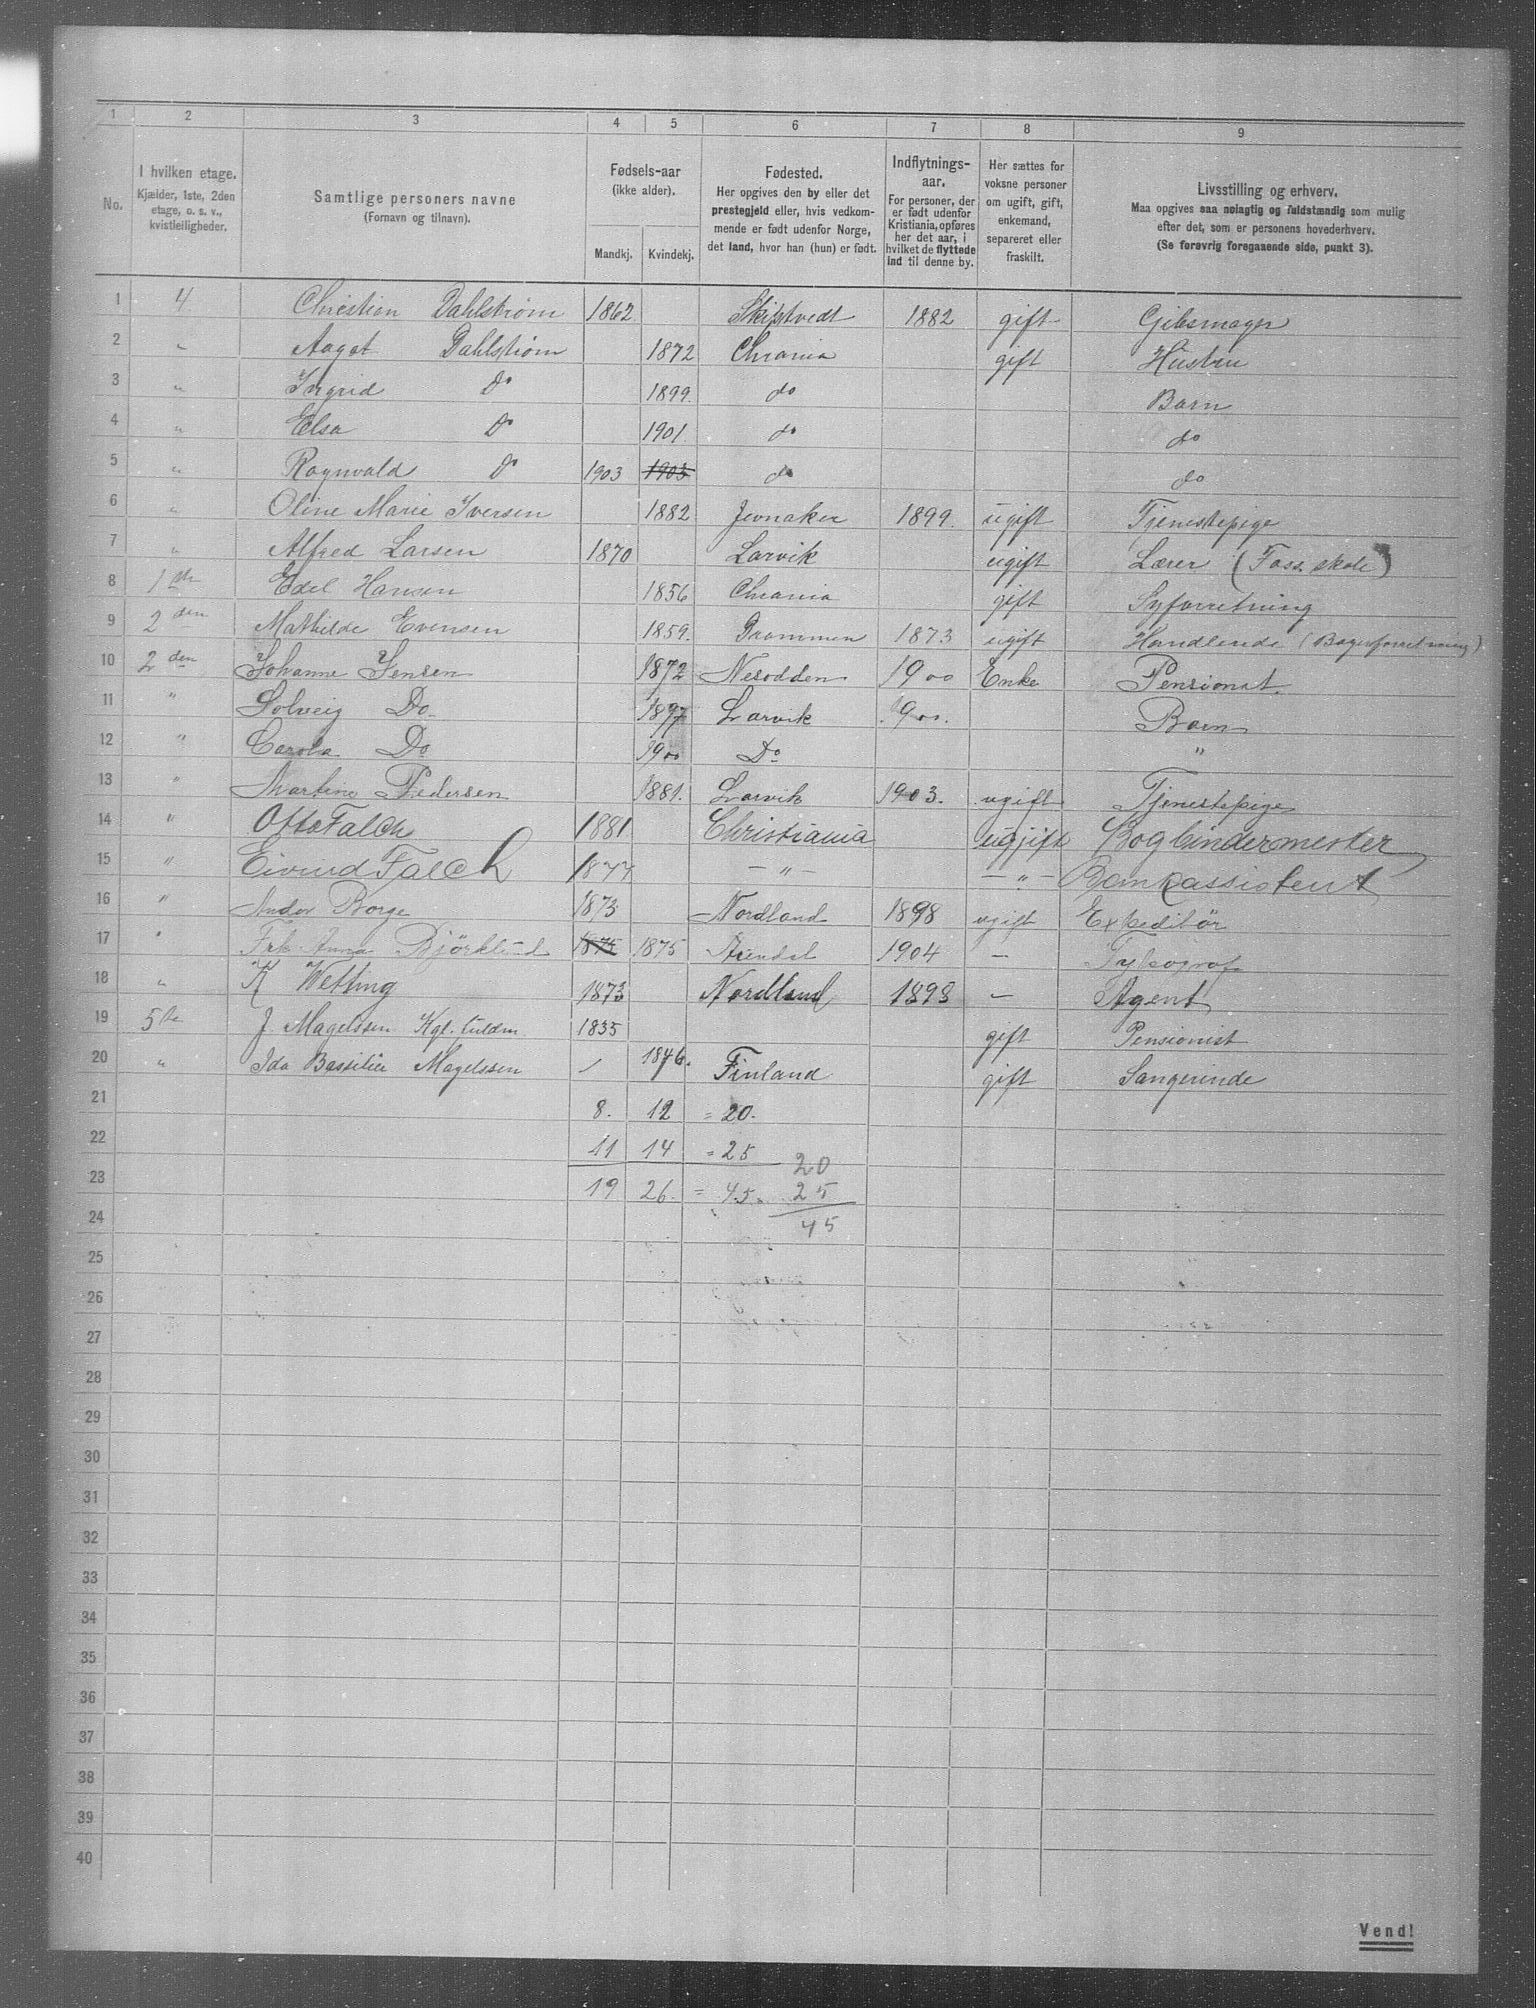 1 2 3 4 5 6 7 8 9
No.
I hvilken etage.
Kjælder, 1ste, 2den
etage, o. s. v.,
kvistleiligheder.
Samtlige personers navne
(Fornavn og tilnavn).
Fødsels-aar
(ikke alder).
Mandkj. Kvindekj.
Fødested.
Her opgives den by eller det
prestegjeld eller, hvis vedkom-
mende er født udenfor Norge,
det land, hvor han (hun) er født.
Indflytnings-
aar.
For personer, der
er født udenfor
Kristiania, opføres
her det aar, i
hvilket de flyttede
ind til denne by.
Her sættes for
voksne personer
om ugift, gift,
enkemand,
separeret eller
fraskilt.
Livsstilling og erhverv.
Maa opgives saa nøiagtig og fuldstændig som mulig
efter det, som er personens hovederhverv.
(Se forøvrig foregaaende side, punkt 3).
1 4. Christian Dahlstrøm 1862 Skiptvedt 1882 gift Gibsmager
2 " Aagot Dahlstrøm 1872 Chrania gift Hustru
3 " Ingrid Do 1899 do Barn
4 " Elsa Do 1901 do do
5 " Ragnvald Do 1903 1903 do do
6 " Oline Marie Iversen 1882 Jevnaker 1899 ugift Tjenestepige
7 " Alfred Larsen 1870 Larvik ugift Lærer (Foss skole)
8 1ste Edel Hansen 1856 Chrania gift Syforretning
9 2den Mathilde Evensen 1859. Drammen 1873 ugift Handlende (Bagerforretning)
10 2den Johanne Jensen 1872 Nesodden 1900 Enke Pensionat
11 " Solveig Do. 1897 Larvik 1900. Barn
12 " Carola Do 1900 Do "
13 " Martine Pedersen 1881. Larvik 1903. ugift Tjenestepige
14 " Otto Falch 1881 Christiania ugjift Bogbindermester
15 " Eivind Falch 1877 — " — — " — Bankassistent
16 " Andor Borge 1873 Nordland 1898 ugift Expeditør
17 " Frk. Anna Bjørklund 1875 1875 Arendal 1904 —
18 " K Wetting 1873 Nordland 1898 — Agent
19 5te J. Magelssen Kgl. fuldm 1835 gift Pensionist
20 " Ida Bassilier Magelssen / 1846. Finland gift Sangerinde
21 8. 12 = 20.
22 11 14 = 25 20
23 19 26. = 45. 25
24 45
25
26
27
28
29
30
31
32
33
34
35
36
37
38
39
40
Vend!